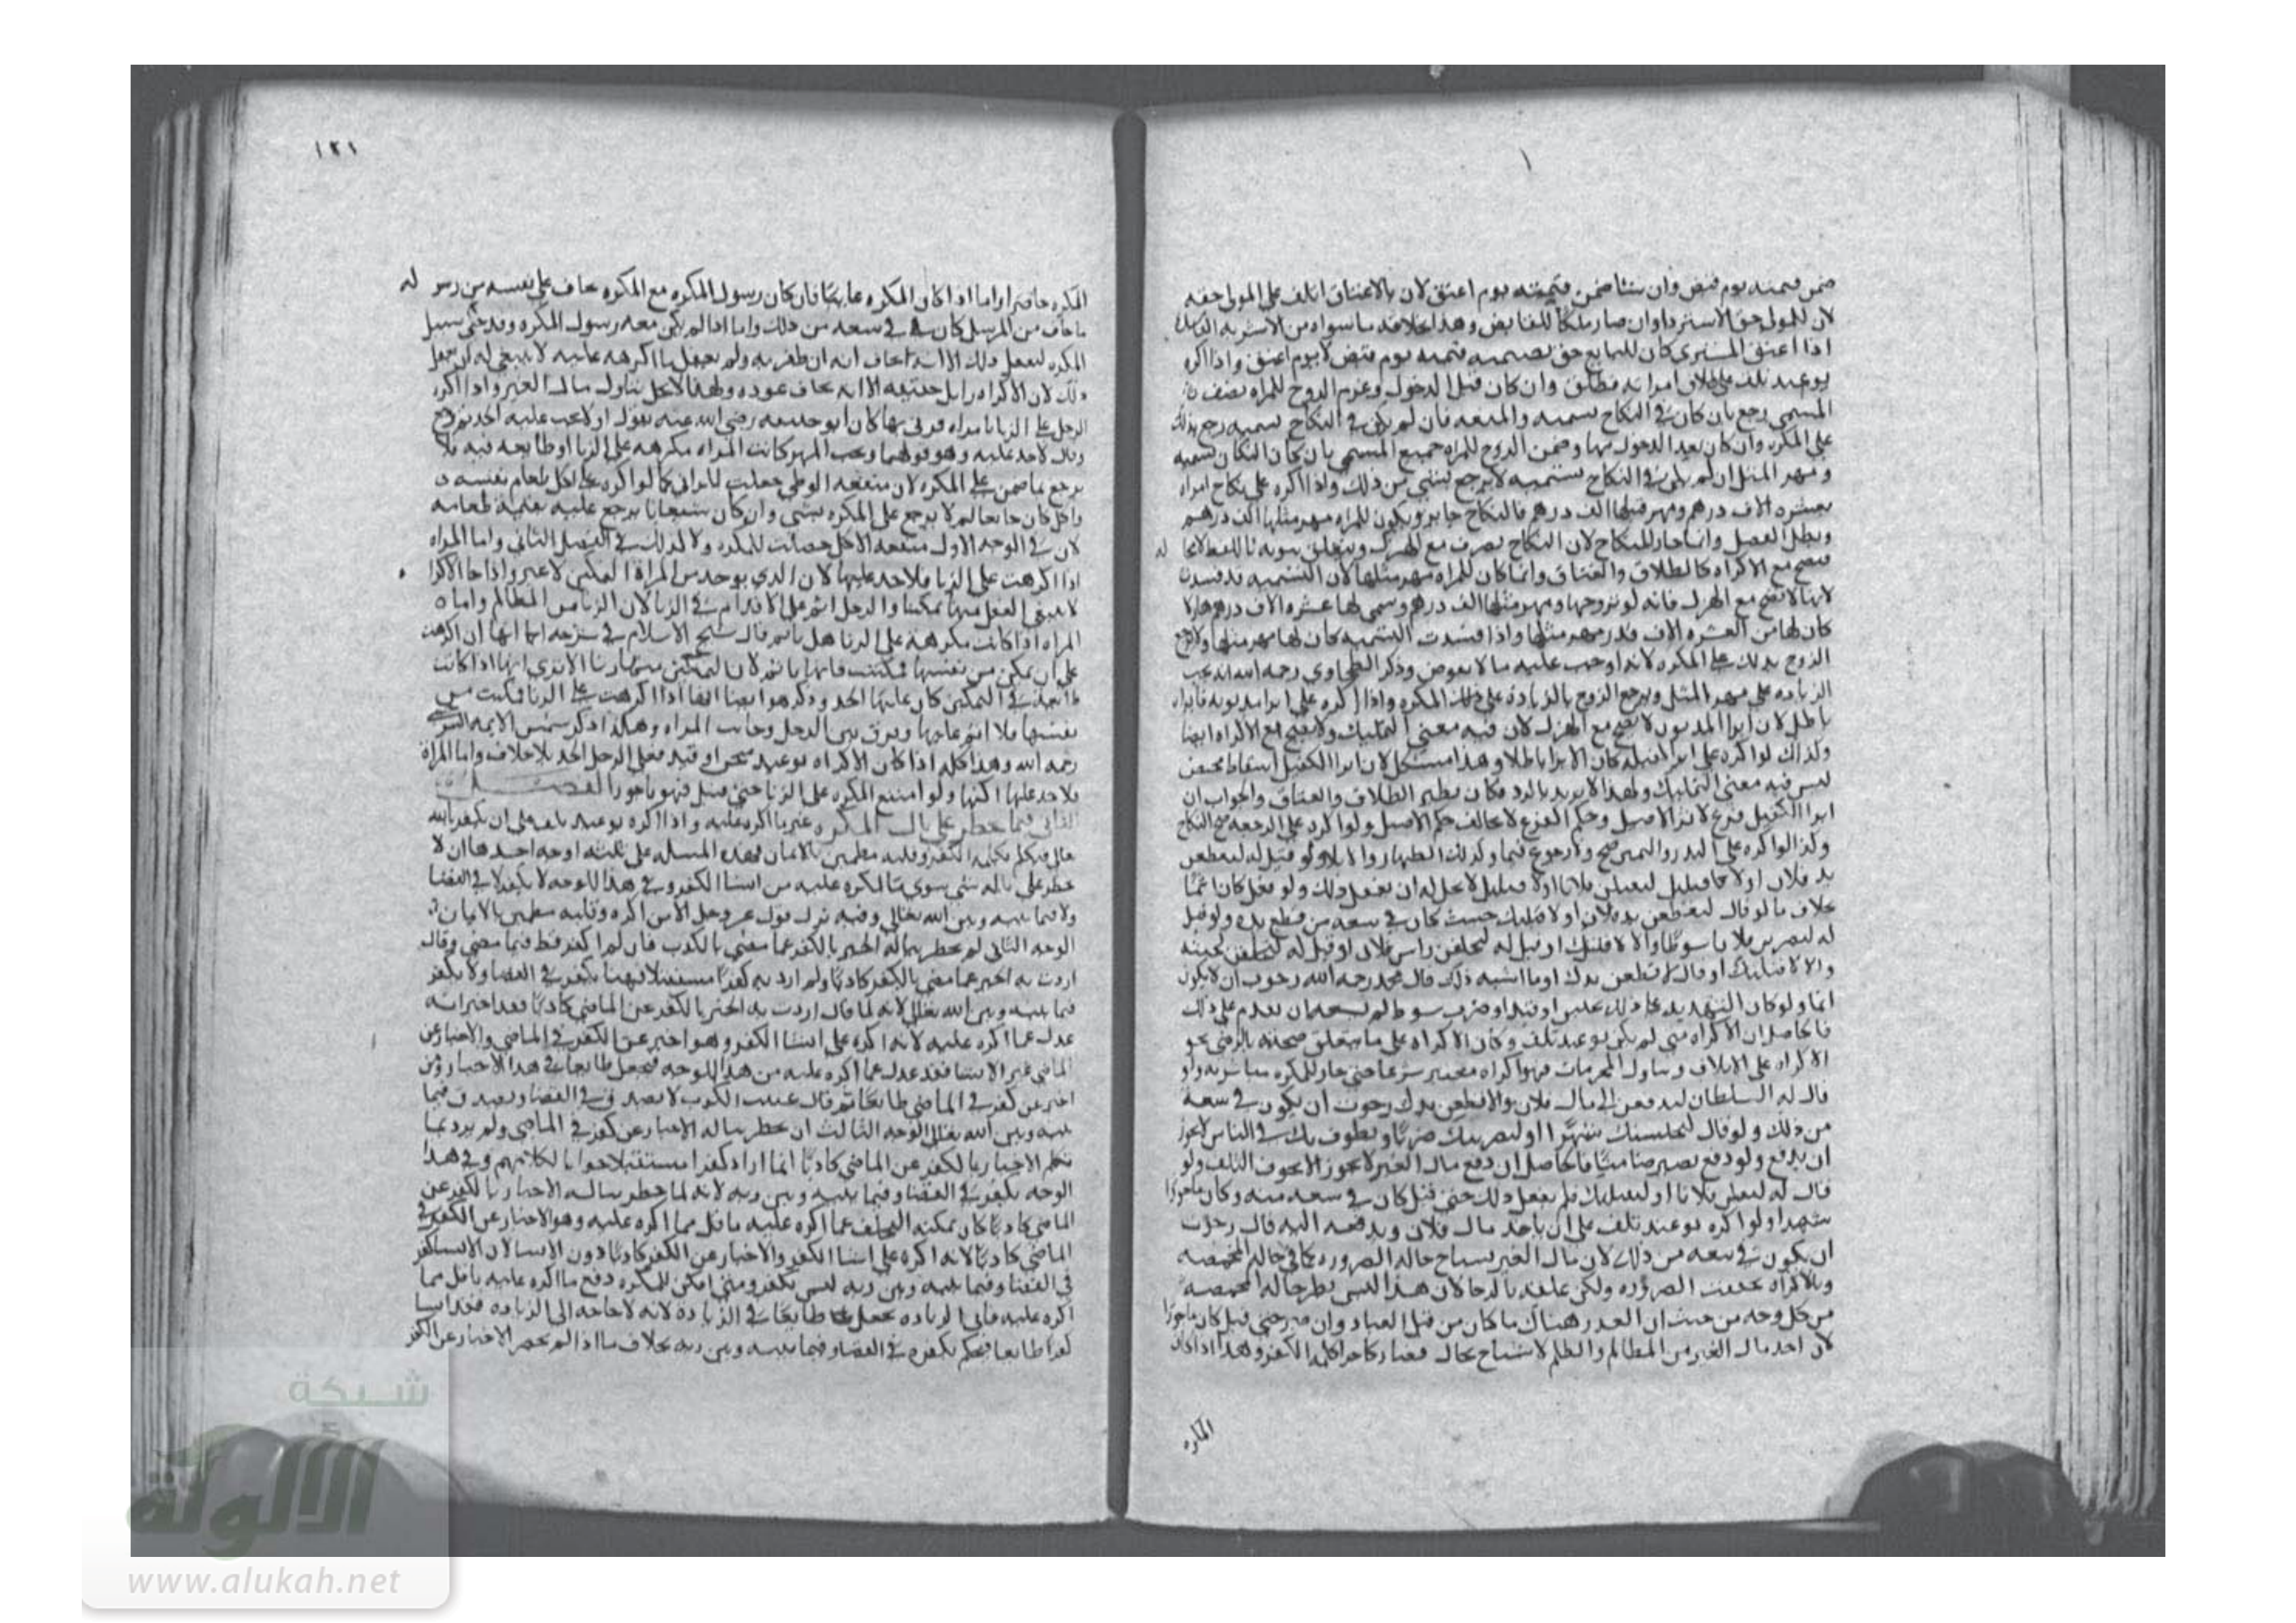 ضمن قيمته يوم قبض وان شا ضمن قيمته يوم اعتق لان بالاعتاق اتلف على المولى حقه
لان للمولى حق الاسترداد وان صار ملكا للقابض وهذا بخلاف ما سواه من الاشربة
اذا اعتق المشتري كان للبايع حق تضمينه قيمته يوم قبض لا يوم اعتق واذا اكره
بوعيد تلف على طلاق امراته فطلق وان كان قبل الدخول وغرم الزوج للمراه نصف
المسمى رجع بان كان في النكاح تسميه والمتعه فان لم يكن في النكاح تسميه رجع بذلك
على المكره وان كان بعد الدخول بها وضمن الزوج للمراه جميع المسمى بان كان النكاح تسميه
ومهر المثل ان لم يكن في النكاح تسميه لا يرجع بشي من ذلك واذا اكره على نكاح امراه
بعشره الاف درهم ومهر مثلها الف درهم فالنكاح جايز ويكون للمراه مهر مثلها الف درهم
وبطل الفضل وانما جاز النكاح لان النكاح تصرف مع الهزل ويتعلق
فيصح مع الاكراه كالطلاق والعتاق وانما كان للمراه مهر مثلها لان التسميه قد فسدت
لانها لا تصح مع الهزل فانه لو تزوجها ومهر مثلها الف درهم وسمى لها عشره الاف درهم هازلا
كان لها من العشره الاف قدر مهر مثلها واذا فسدت التسميه كان لها مهر مثلها ولا يرجع
الزوج بذلك على المكره لانه اوجب عليه مالا بعوض وذكر الطحاوي رحمه الله انه يجب
الزياده على مهر المثل ويرجع الزوج بالزيادة على ذلك المكره واذا اكره على ابرا مديونه فابراه
باطل لان ابرا المديون لا يصح مع الهزل لان فيه معنى التمليك ولا يصح مع الاكراه ايضا
وكذلك لو اكره على ابرا كفيله كان الابرا باطلا وهذا مشكل لان ابرا الكفيل اسقاط محض
ليس فيه معنى التمليك ولهذا لا يرتد بالرد فكان نظير الطلاق والعتاق والجواب ان
ابرا الكفيل فرع لابرا الاصيل وحكم الفرع لا يخالف حكم الاصيل ولو اكره على الرجعه صح النكاح
وكذا لو اكره على النذر واليمين صح ولا رجوع فيها وكذلك الظهار والايلا ولو قيل له لتقطعن
يد فلان اولا فاقتلك ليقتلن فلانا اولا فيقتلك لا يحل له ان يفعل ذلك ولو فعل كان اثما
بخلاف ما لو قال لتقطعن يدك اولا قتلتك حيث كان في سعه من قطع يده ولو قيل
له لتضربن فلانا سوطا والا لاقتلنك او قيل له لتحلقن راس فلان او قيل له لتحلقن لحيته
والا لاقتلنك او قال لاقطعن يدك او ما اشبه ذلك قال محمد رحمه الله رجوت ان لا يكون
اثما ولو كان التهديد على ذلك بحبس او قيد او ضرب سوط لم يسعه ان يقدم على ذلك
فالحاصل ان الاكراه متى لم يكن بوعيد تلف وكان الاكراه على ما يتعلق صحته بالرضى نحو
الاكراه على الاتلاف وتناول المحرمات فهو اكراه معتبر شرعا حتى جاز للمكره مباشرته ولو
قال له السلطان لتدفعن الي مال فلان والا قطعن يدك رجوت ان يكون في سعة
من ذلك ولو قال لتحبسنك شهرا او لنضربنك ضربا ونطوف بك في الناس لا يجوز
ان يدفع ولو دفع يصير ضامنا فالحاصل ان دفع مال الغير لا يجوز الا بخوف التلف ولو
قال له لتعطي فلانا او ليقتلنك فلم يفعل ذلك حتى قتل كان في سعة منه وكان ماجورا
شهيدا ولو اكره بوعيد تلف على ان ياخذ مال فلان ويدفعه اليه قال رجوت
ان يكون في سعه من ذلك لان مال الغير يستباح حاله الضروره كما في حاله المخمصه
وبالاكراه تحققت الضروره ولكن علقه بالرجا لان هذا ليس نظير حاله المخمصه
من كل وجه من حيث ان العذر هناك ما كان من قبل العباد وان صبر حتى قتل كان ماجورا
لان اخذ مال الغير من المظالم والظلم لا يستباح بحال فصار كاجرا كلمة الكفر وهذا اذا كان
المكره
١٢١
المكره حاضرا واما اذا كان المكره غايبا فان كان رسول المكره مع المكره يخاف على نفسه من رسوله
ما خاف من المرسل كان في سعه من ذلك واما اذا لم يكن معه رسول المكره وقد خلى سبيل
المكره ليفعل ذلك الا انه يخاف انه ان ظفر به ولم يفعل ما اكرهه عليه لا ينبغي له ان يفعل
ذلك لان الاكراه زايل حقيقه الا انه يخاف عوده وبهذا لا يحل تناول مال الغير واذا اكره
الرجل على الزنا بامراه فزنى بها كان ابو حنيفه رضي الله عنه يقول اولا يجب عليه الحد ثم رجع
وقال لا حد عليه وهو قولهما ويجب المهر كانت المراه مكرهه على الزنا او طايعه فيه ولا
يرجع بما ضمن على المكره لان منفعه الوطي حصلت للزاني كما لو اكره على اكل طعام نفسه
واكل كان جايعا لم لا يرجع على المكره بشي وان كان شبعانا يرجع عليه بقيمة طعامه
لان في الوجه الاول منفعه الاكل حصلت للمكره ولا كذلك في الفصل الثاني واما المراه
اذا اكرهت على الزنا فلا حد عليها لان الذي يوجد من المراة التمكين لا غير واذا جا الاكراه
لا يبقى الفعل منها تمكينا والرجل اثم على الاقدام في الزنا لان الزنا من المظالم واما
المراه اذا كانت مكرهة على الزنا هل ياثم قال شيخ الاسلام في شرحه انها ان اكرهت
على ان تمكن من نفسها فمكنت فانها ياثم لان التمكين منها زنا الا ترى انها اذا كانت
طايعه في التمكين كان عليها الحد وذكر هو ايضا انها اذا اكرهت على الزنا فمكنت من
نفسها فلا اثم عليها وفرق بين الرجل وجانب المراه وهكذا ذكر شمس الايمه السرخسي
رحمه الله وهذا كله اذا كان الاكراه بوعيد سجن او قيد فعلى الرجل الحد بلا خلاف واما المراة
فلا حد عليها لكنها ولو امتنع المكره على الزنا حتى قتل فهو ماجور الفصل
الثاني فيما يخطر على بال المكره غير ما اكره عليه واذا اكره بوعيد تلف على ان يكفر بالله
تعالى فتكلم بكلمه الكفر وقلبه مطمين بالايمان فهذه المسله على ثلثه اوجه احدها ان لا
يخطر على باله شي سوى ما اكره عليه من انشا الكفر وفي هذا الوجه لا يكفر لا في القضا
ولا فيما بينه وبين الله تعالى وفيه نزل قوله عز وجل الا من اكره وقلبه مطمين بالايمان
الوجه الثاني لم يخطر بباله الخبر بالكفر عما مضى بالكذب فان لم اكفر قط فيما مضى وقال
اردت به اخبر عما مضى بالكفر كاذبا ولم ارد به كفرا مستقبلا فهنا يكفر في القضا ولا يكفر
فيما بينه وبين الله تعالى لانه لما قال اردت به الخبر بالكفر عن الماضي كاذبا فقد اخبر انه
عدل عما اكره عليه لانه اكره على انشا الكفر وهو اخبر عن الكفر في الماضي والاخبار عن
الماضي غير الانشا فقد عدل عما اكره عليه من هذا الوجه فيجعل طايعا في هذا الاخبار ومن
اخبر عن كفر في الماضي طايعا ثم قال عنيت الكذب لا يصدق في القضا ويصدق فيما
بينه وبين الله تعالى الوجه الثالث ان يخطر بباله الاخبار عن كفر في الماضي ولم يرد بما
تكلم الاخبار بالكفر عن الماضي كاذبا انما اراد كفرا مستقبلا جوابا لكلامهم وفي هذا
الوجه يكفر في القضا وفيما بينه وبين ربه لانه لما خطر بباله الاخبار بالكفر عن
الماضي كاذبا كان يمكنه التخلف عما اكره عليه باقل مما اكره عليه وهو الاخبار عن الكفر في
الماضي كاذبا لانه اكره على انشا الكفر والاخبار عن الكفر كاذبا دون الانشا لان الانشا كفر
في القضا وفيما بينه وبين ربه ليس بكفر ومتى امكن للمكره دفع ما اكره عليه باقل مما
اكره عليه فاتى الزياده يجعل طايعا في الزيادة لانه لا حاجه الى الزياده فقد انشا
كفرا طايعا فيحكم بكفره في القضا وفيما بينه وبين ربه بخلاف ما اذا لم يخطر الاخبار عن الكفر
شبكة
الألوكة
www.alukah.net